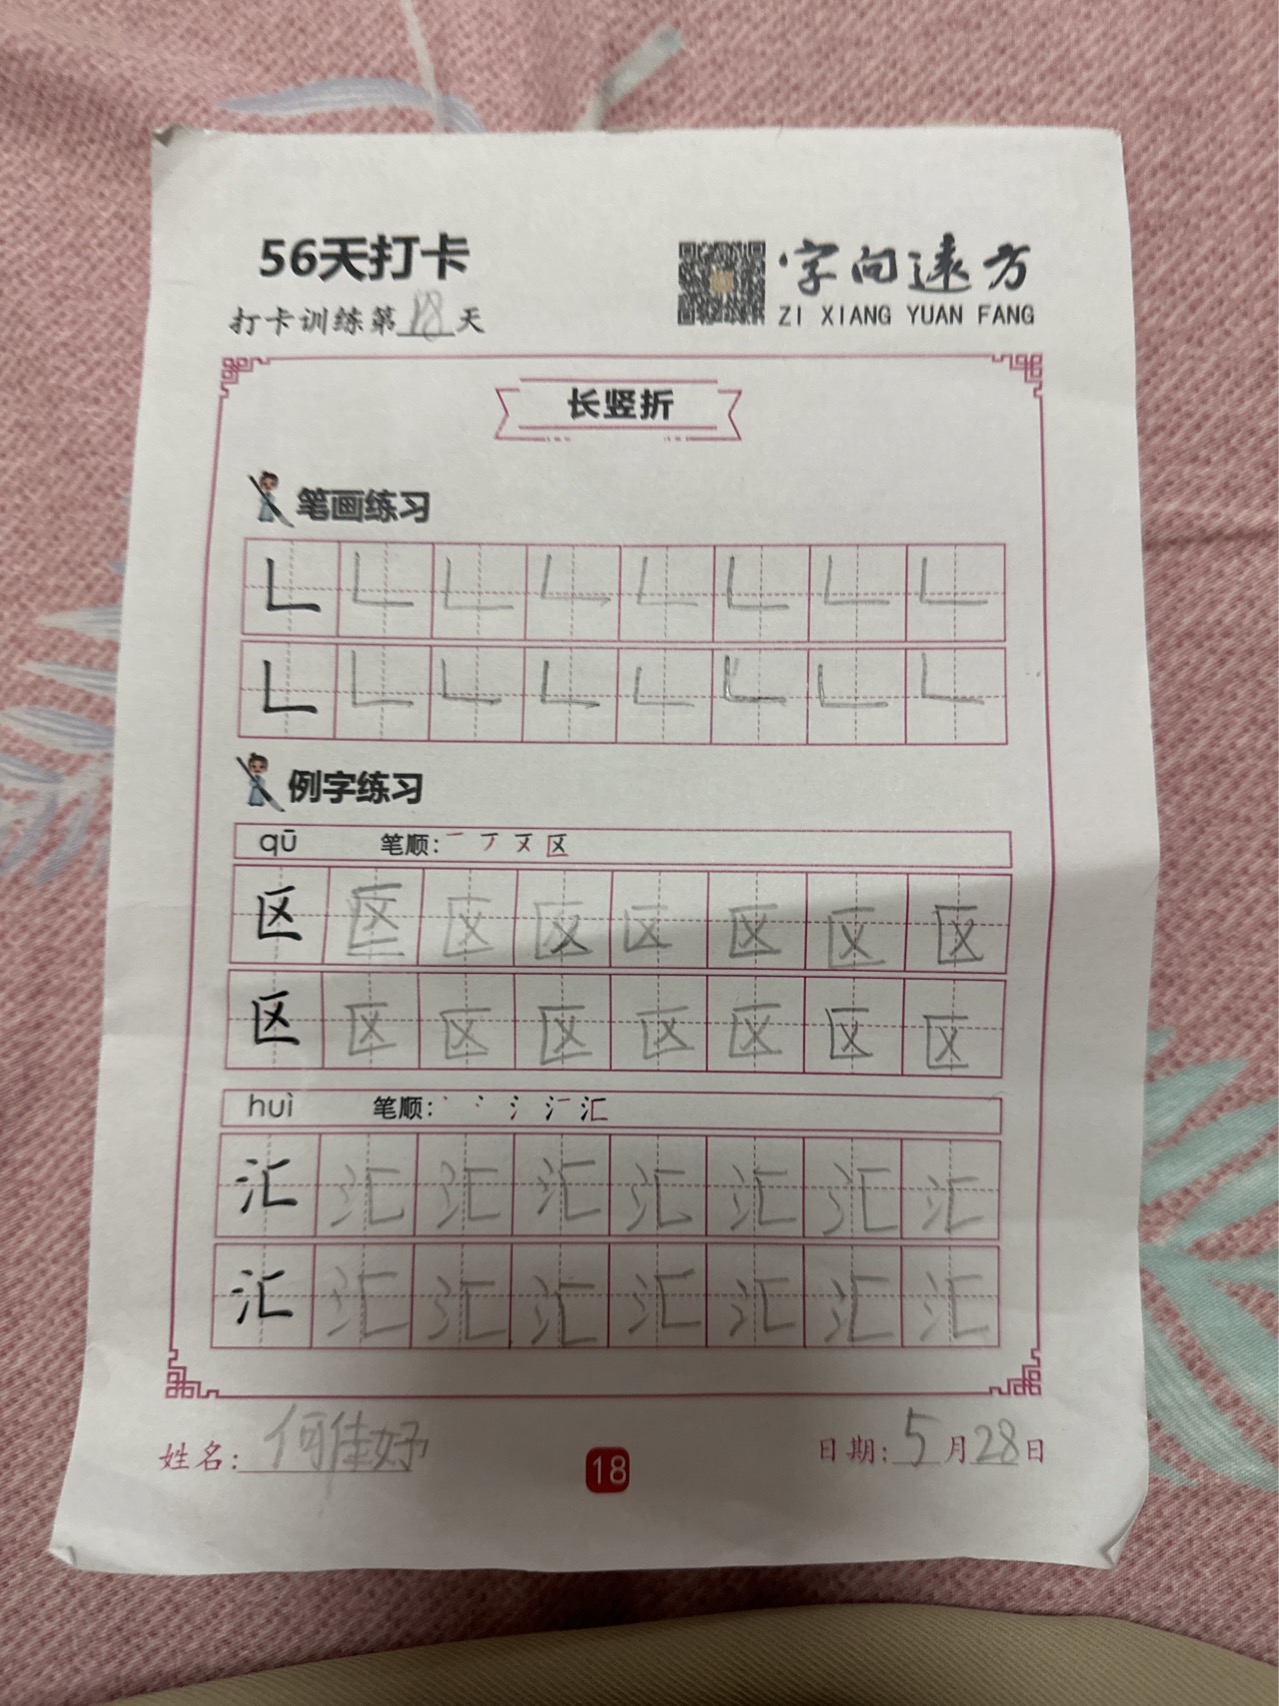 56天打卡
打卡训练第18天
字向远方
ZI XIANG YUAN FANG
长竖折
笔画练习
𠃊 𠃊 𠃊 𠃊 𠃊 𠃊 𠃊 𠃊
𠃊 𠃊 𠃊 𠃊 𠃊 𠃊 𠃊 𠃊
例字练习
qū 笔顺: 一 丆 区
区 区 区 区 区 区 区 区
区 区 区 区 区 区 区 区
huì 笔顺: 丶 冫 氵 汇
汇 汇 汇 汇 汇 汇 汇 汇
汇 汇 汇 汇 汇 汇 汇 汇
姓名: 何佳妤 18 日期: 5月28日